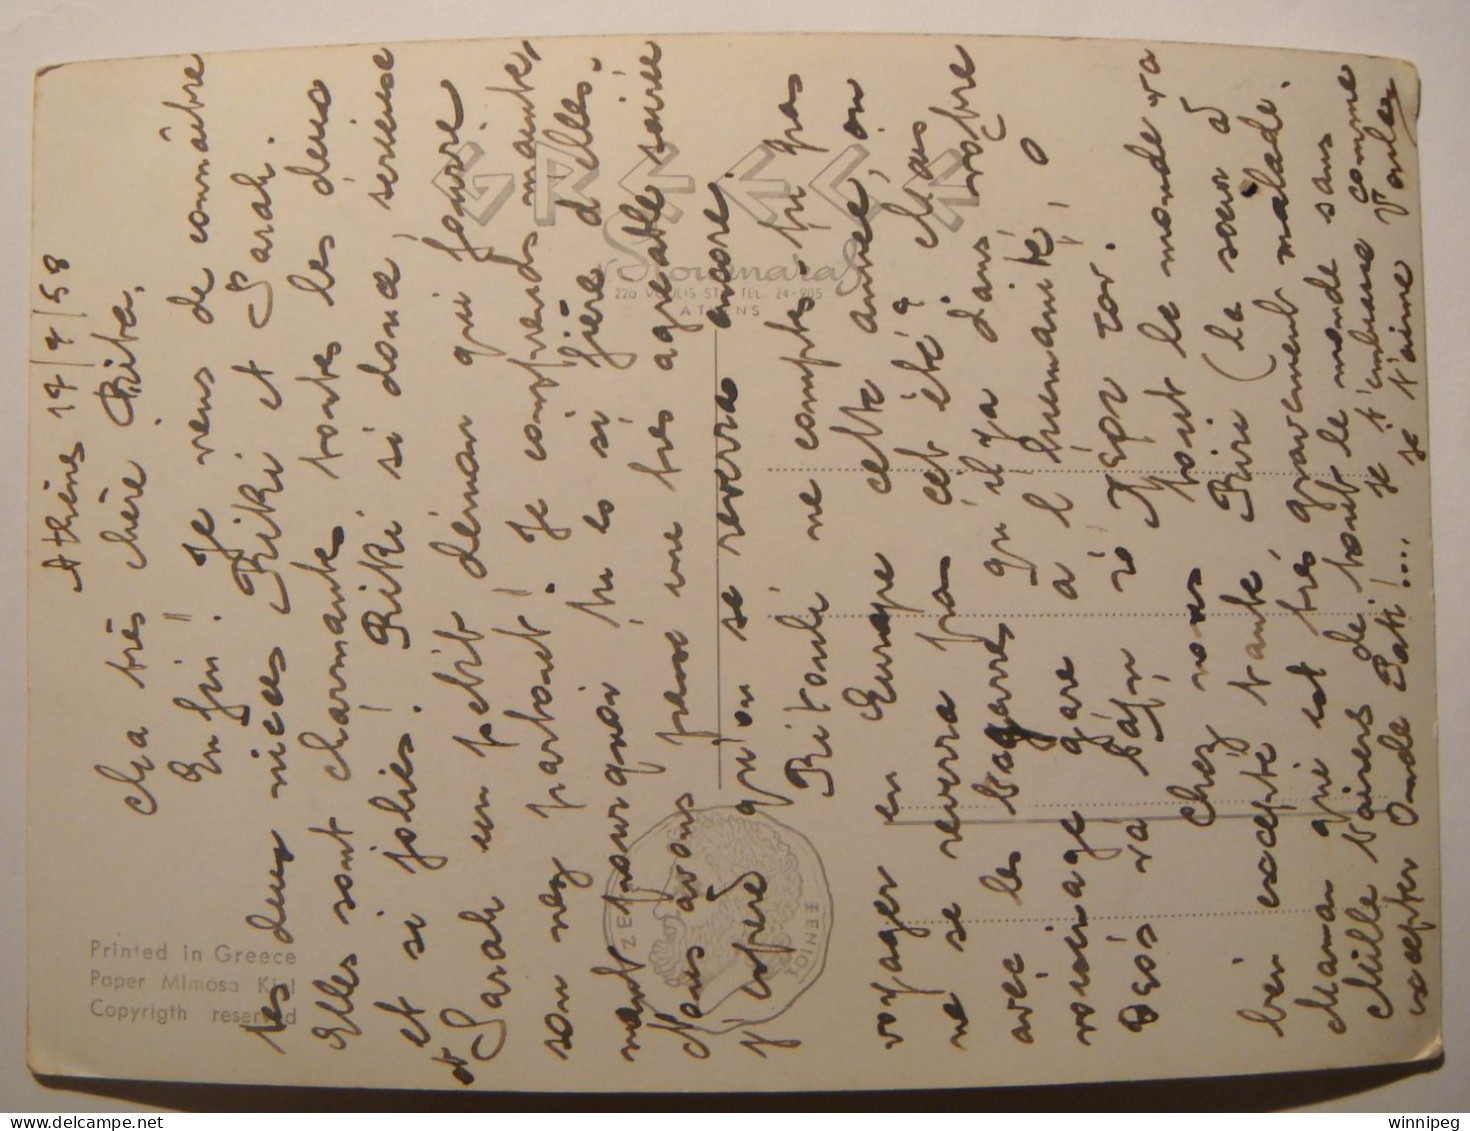 Athènes 19/7/58
Ma très chère Rita,
Enfin! Je viens de connaître
tes deux nièces Riki et Sarah.
Elles sont charmantes toutes les deux
et si jolies! Riki si donce, sérieuse
et Sarah un petit démon qui fourre
son nez partout! Je comprends maunte,
nant pourquoi tu es si fière d'elles.
Nous avons passé une très agréable soirée
j'espère qu'on se reverra encore.
Ritoulé ne comptes-tu pas
voyager en Europe cette année, on
ne se reverra pas cet été? Mais
avec les bagarres qu'il y a dans votre
voisinage gare à l'humanité, ο
Θεός νά βάλη τό χέρι του.
Chez nous tout le monde va
bien excepté tante Rivi (la sœur à
Maman qui est très gravement malade.
Mille baisers de tout le monde sans
excepter Onde Pati!... je t'embrasse comme
je t'aime Poulez
GREECE
220 VOULIS STR. TEL. 24-905
ATHENS
ZEUS
Printed in Greece
Paper Mimosa Kiel
Copyrigth reserved
winnipeg